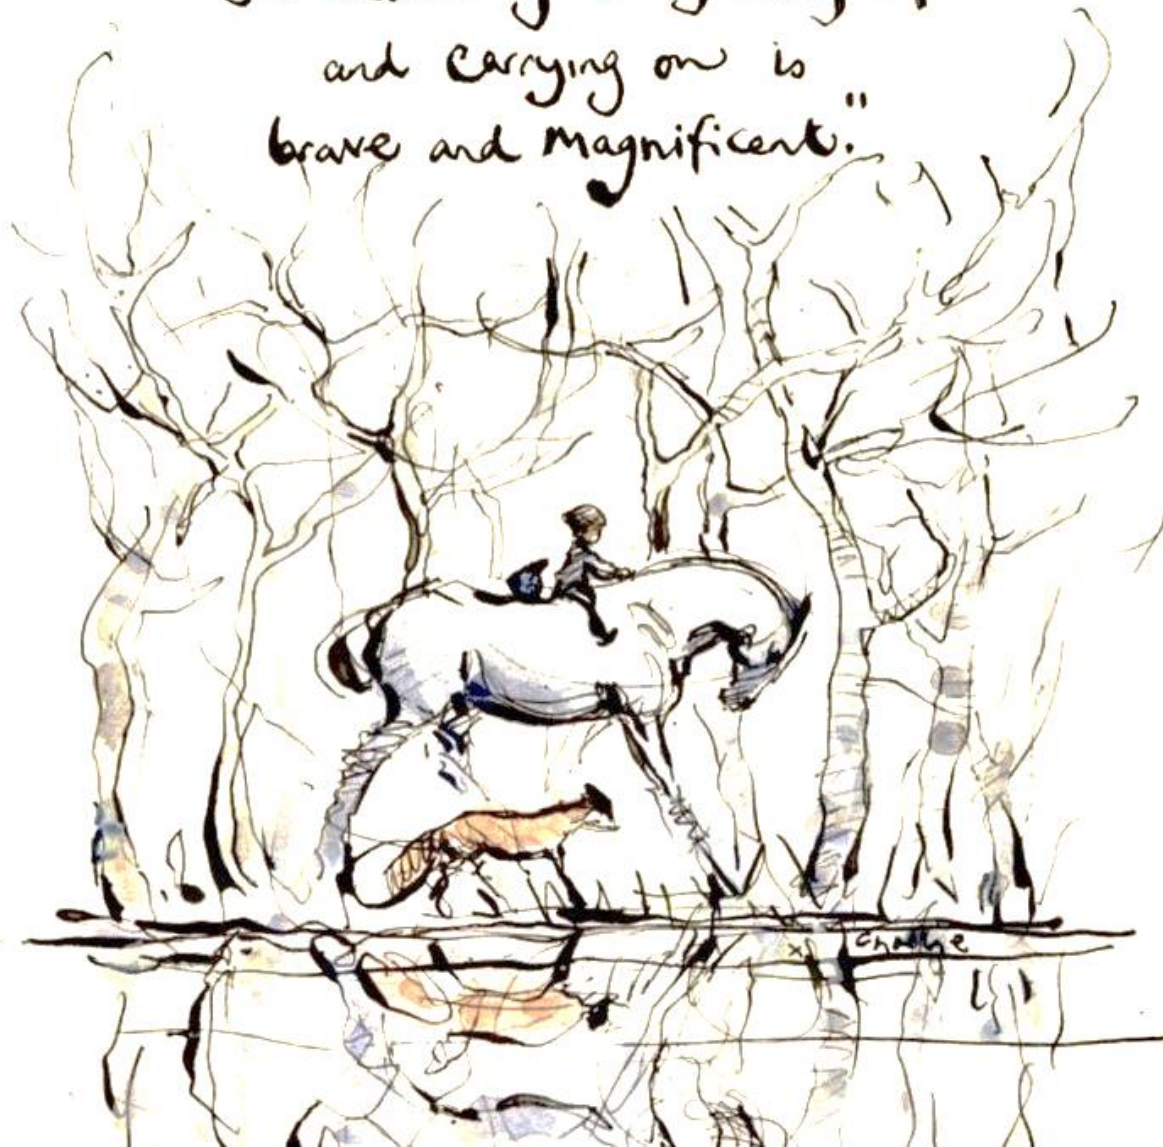 and carrying on is
brave and magnificent."
Charlie